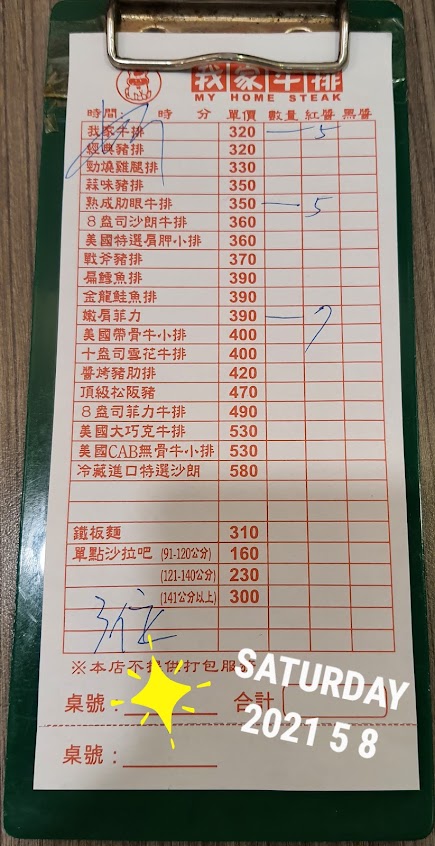 我家牛排
MY HOME STEAK
時間 時 分 單價 數量 紅醬 黑醬
我家牛排 320 一 5
經典豬排 320
勁燒雞腿排 330
蒜味豬排 350
熟成肋眼牛排 350 一 5
8盎司沙朗牛排 360
美國特選肩胛小排 360
戰斧豬排 370
扁鱈魚排 390
金龍鮭魚排 390
嫩肩菲力 390 一 7
美國帶骨牛小排 400
十盎司雪花牛排 400
醬烤豬肋排 420
頂級松阪豬 470
8盎司菲力牛排 490
美國大巧克牛排 530
美國CAB無骨牛小排 530
冷藏進口特選沙朗 580
鐵板麵 310
單點沙拉吧 (91-120公分) 160
(121-140公分) 230
(141公分以上) 300
3位
※本店不提供打包服務
桌號： 合計
SATURDAY
2021 5 8
桌號：